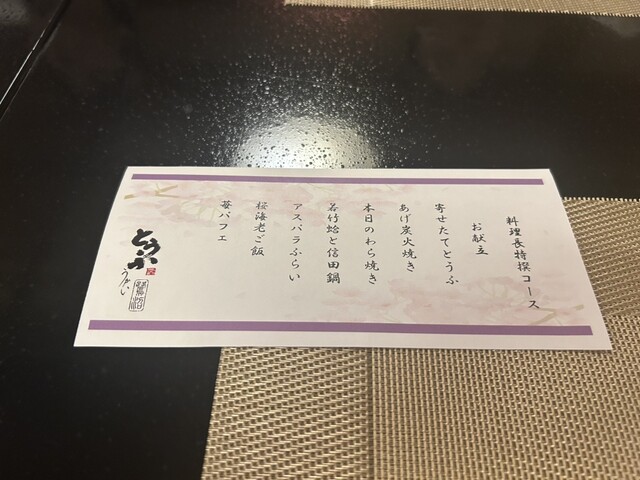 料理長特撰コース
お献立
寄せたてとうふ
あげ炭火焼き
本日のわら焼き
若竹蛤と信田鍋
アスパラふらい
桜海老ご飯
苺パフェ
とうふ
うかい